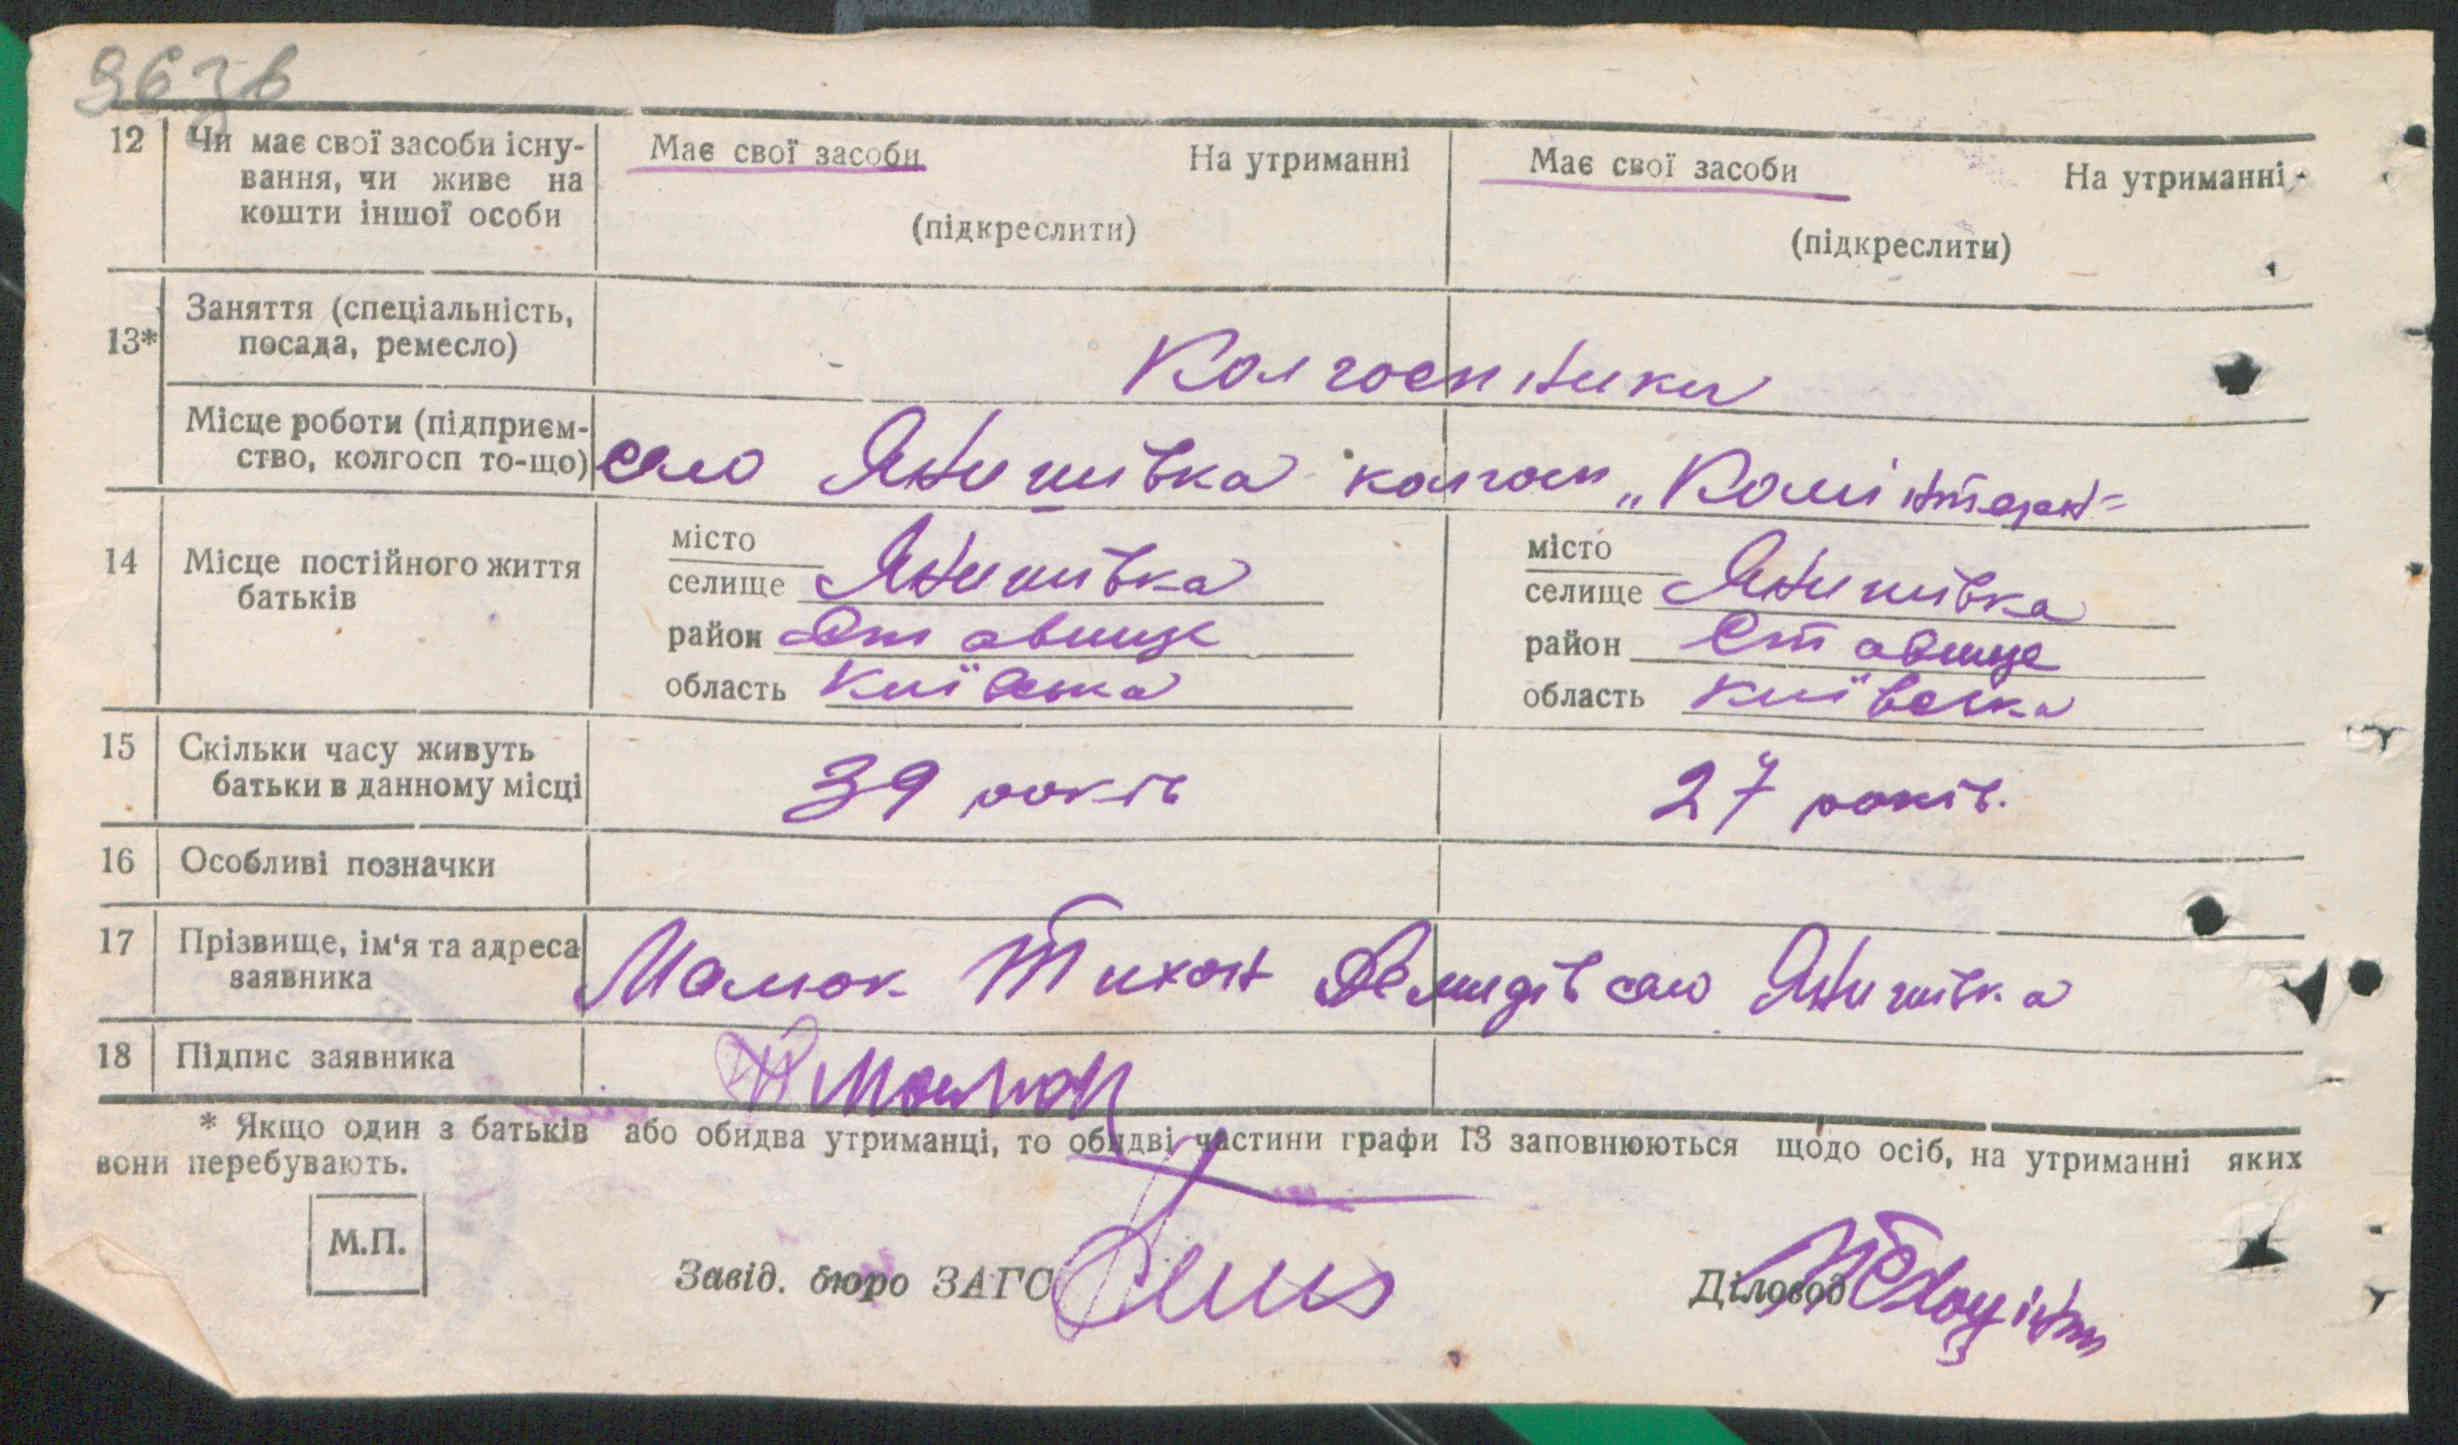 963б
12 Чи має свої засоби існу- Має свої засоби На утриманні Має свої засоби На утриманні
вання, чи живе на
кошти іншої особи (підкреслити) (підкреслити)
13* Заняття (спеціальність,
посада, ремесло) Колгоспники
Місце роботи (підприєм-
ство, колгосп то-що) село Янишівка колгосп „Комінтерн"
14 Місце постійного життя місто місто
батьків селище Янишівка селище Янишівка
район Ставище район Ставище
область Київська область Київська
15 Скільки часу живуть
батьки в данному місці 39 років 27 років.
16 Особливі позначки
17 Прізвище, ім'я та адреса
заявника Малюк Тихон Демидів село Янишівка
18 Підпис заявника Т Малюк
* Якщо один з батьків або обидва утриманці, то обидві частини графи 13 заповнюються щодо осіб, на утриманні яких
вони перебувають.
М.П.
Завід. бюро ЗАГС Діловод